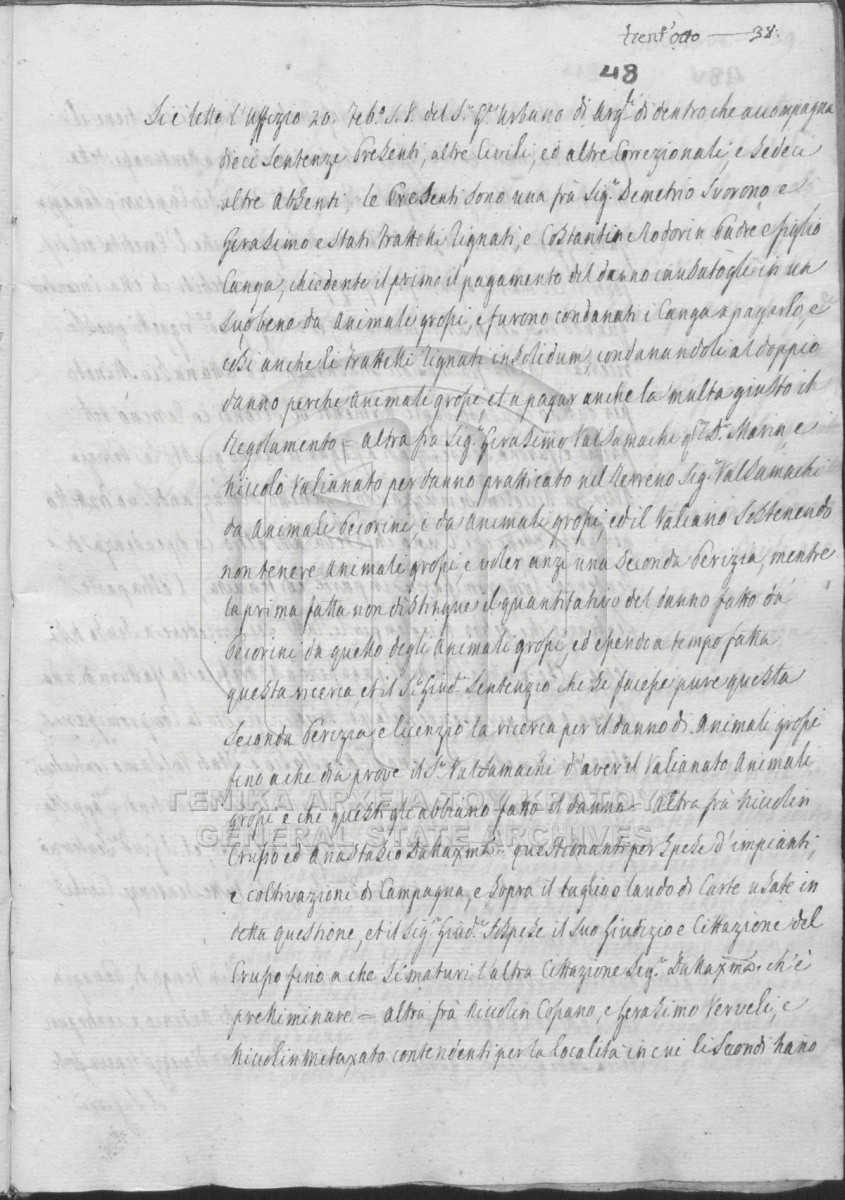 trent'otto — 38.
48
Si è letto l'uffizio 20. Feb.º S.V. del S.r G.e Urbano di Arg.li di dentro che accompagna
dieci Sentenze Presenti, altre Civili, ed altre Correzionali, e Sedeci
altre Absenti, le Presenti sono una frà Sig.r Demetrio Svorono e
Gerasimo e Stati Frattelli Zignati, e Costantin e Rodorin Padre e figlio
Canga, chiedente il primo il pagamento del danno causatogli in un
Suo bene da Animali grossi, e furono condanati i Canga a pagarlo, e
così anche li Frattelli Zignati insolidum, condanandoli al doppio
danno perche Animali grossi, et a pagar anche la multa giusto il
Regolamento = altra frà Sig.r Gerasimo Valsamachi q.m D.r Marin, e
Niccolò Valianato per danno pratticato nel Terreno Sig.r Valsamachi
da Animali Pecorini, e da Animali grossi, ed il Valiano Sostenendo
non tenere Animali grossi, e voler anzi una Seconda Perizia, mentre
la prima fatta non distingue il quantitativo del danno fatto da
Pecorini da quello degli Animali grossi, ed essendo a tempo fatta
questa ricerca et il S.r Giud.e Sentenziò che Se facesse pure questa
Seconda Perizia e licenziò la ricerca per il danno di Animali grossi
fino a che dia prove il S.r Valsamachi d'aver il Valianato Animali
grossi e che questi gli abbiano fatto il danno = Altra frà Niccolin
Crusso ed Anastasio questionanti per Spese d'impianti,
e coltivazione di Campagna, e Sopra il taglio o laudo di Carte usate in
detta questione, et il Sig.r Giud.e Sospese il Suo Giudizio e Cittazione del
Crusso fino a che Si maturi l'altra Cittazione Seg.r ch'è
preliminare = altra frà Niccolin Copano, e Gerasimo Verveli, e
Niccolin Metaxato contendenti per la località in cui li Secondi hano
ΓΕΝΙΚΑ ΑΡΧΕΙΑ ΤΟΥ ΚΡΑΤΟΥΣ
GENERAL STATE ARCHIVES